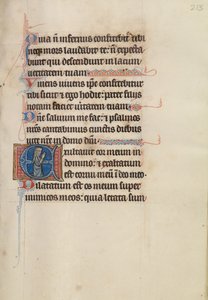 213
Quia non infernus confitebitur tibi
neq; mors laudabit te: non expecta
bunt qui descendunt in lacum
ueritatem tuam.
Uiuens uiuens ipse confitebitur
tibi sicut et ego hodie: pater filiis
notam faciet ueritatem tuam.
Domine saluum me fac: et psalmos
nostros cantabimus cunctis diebus
uite nostre in domo domini.
Exultauit cor meum in
domino: et exaltatum
est cornu meum in deo meo.
Dilatatum est os meum super
inimicos meos: quia letata sum